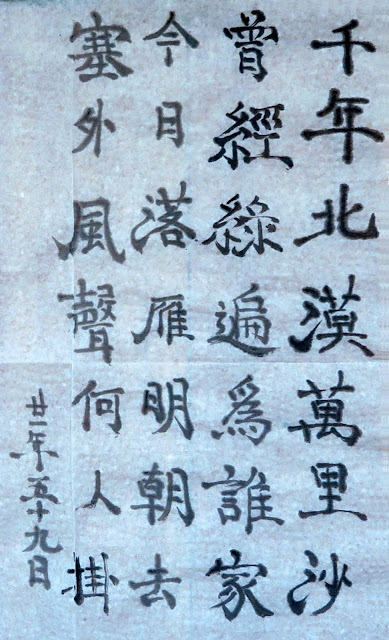 千年北漠萬里沙
曾經綠遍為誰家
今日落雁明朝去
塞外風聲何人掛
廿一年五十九日